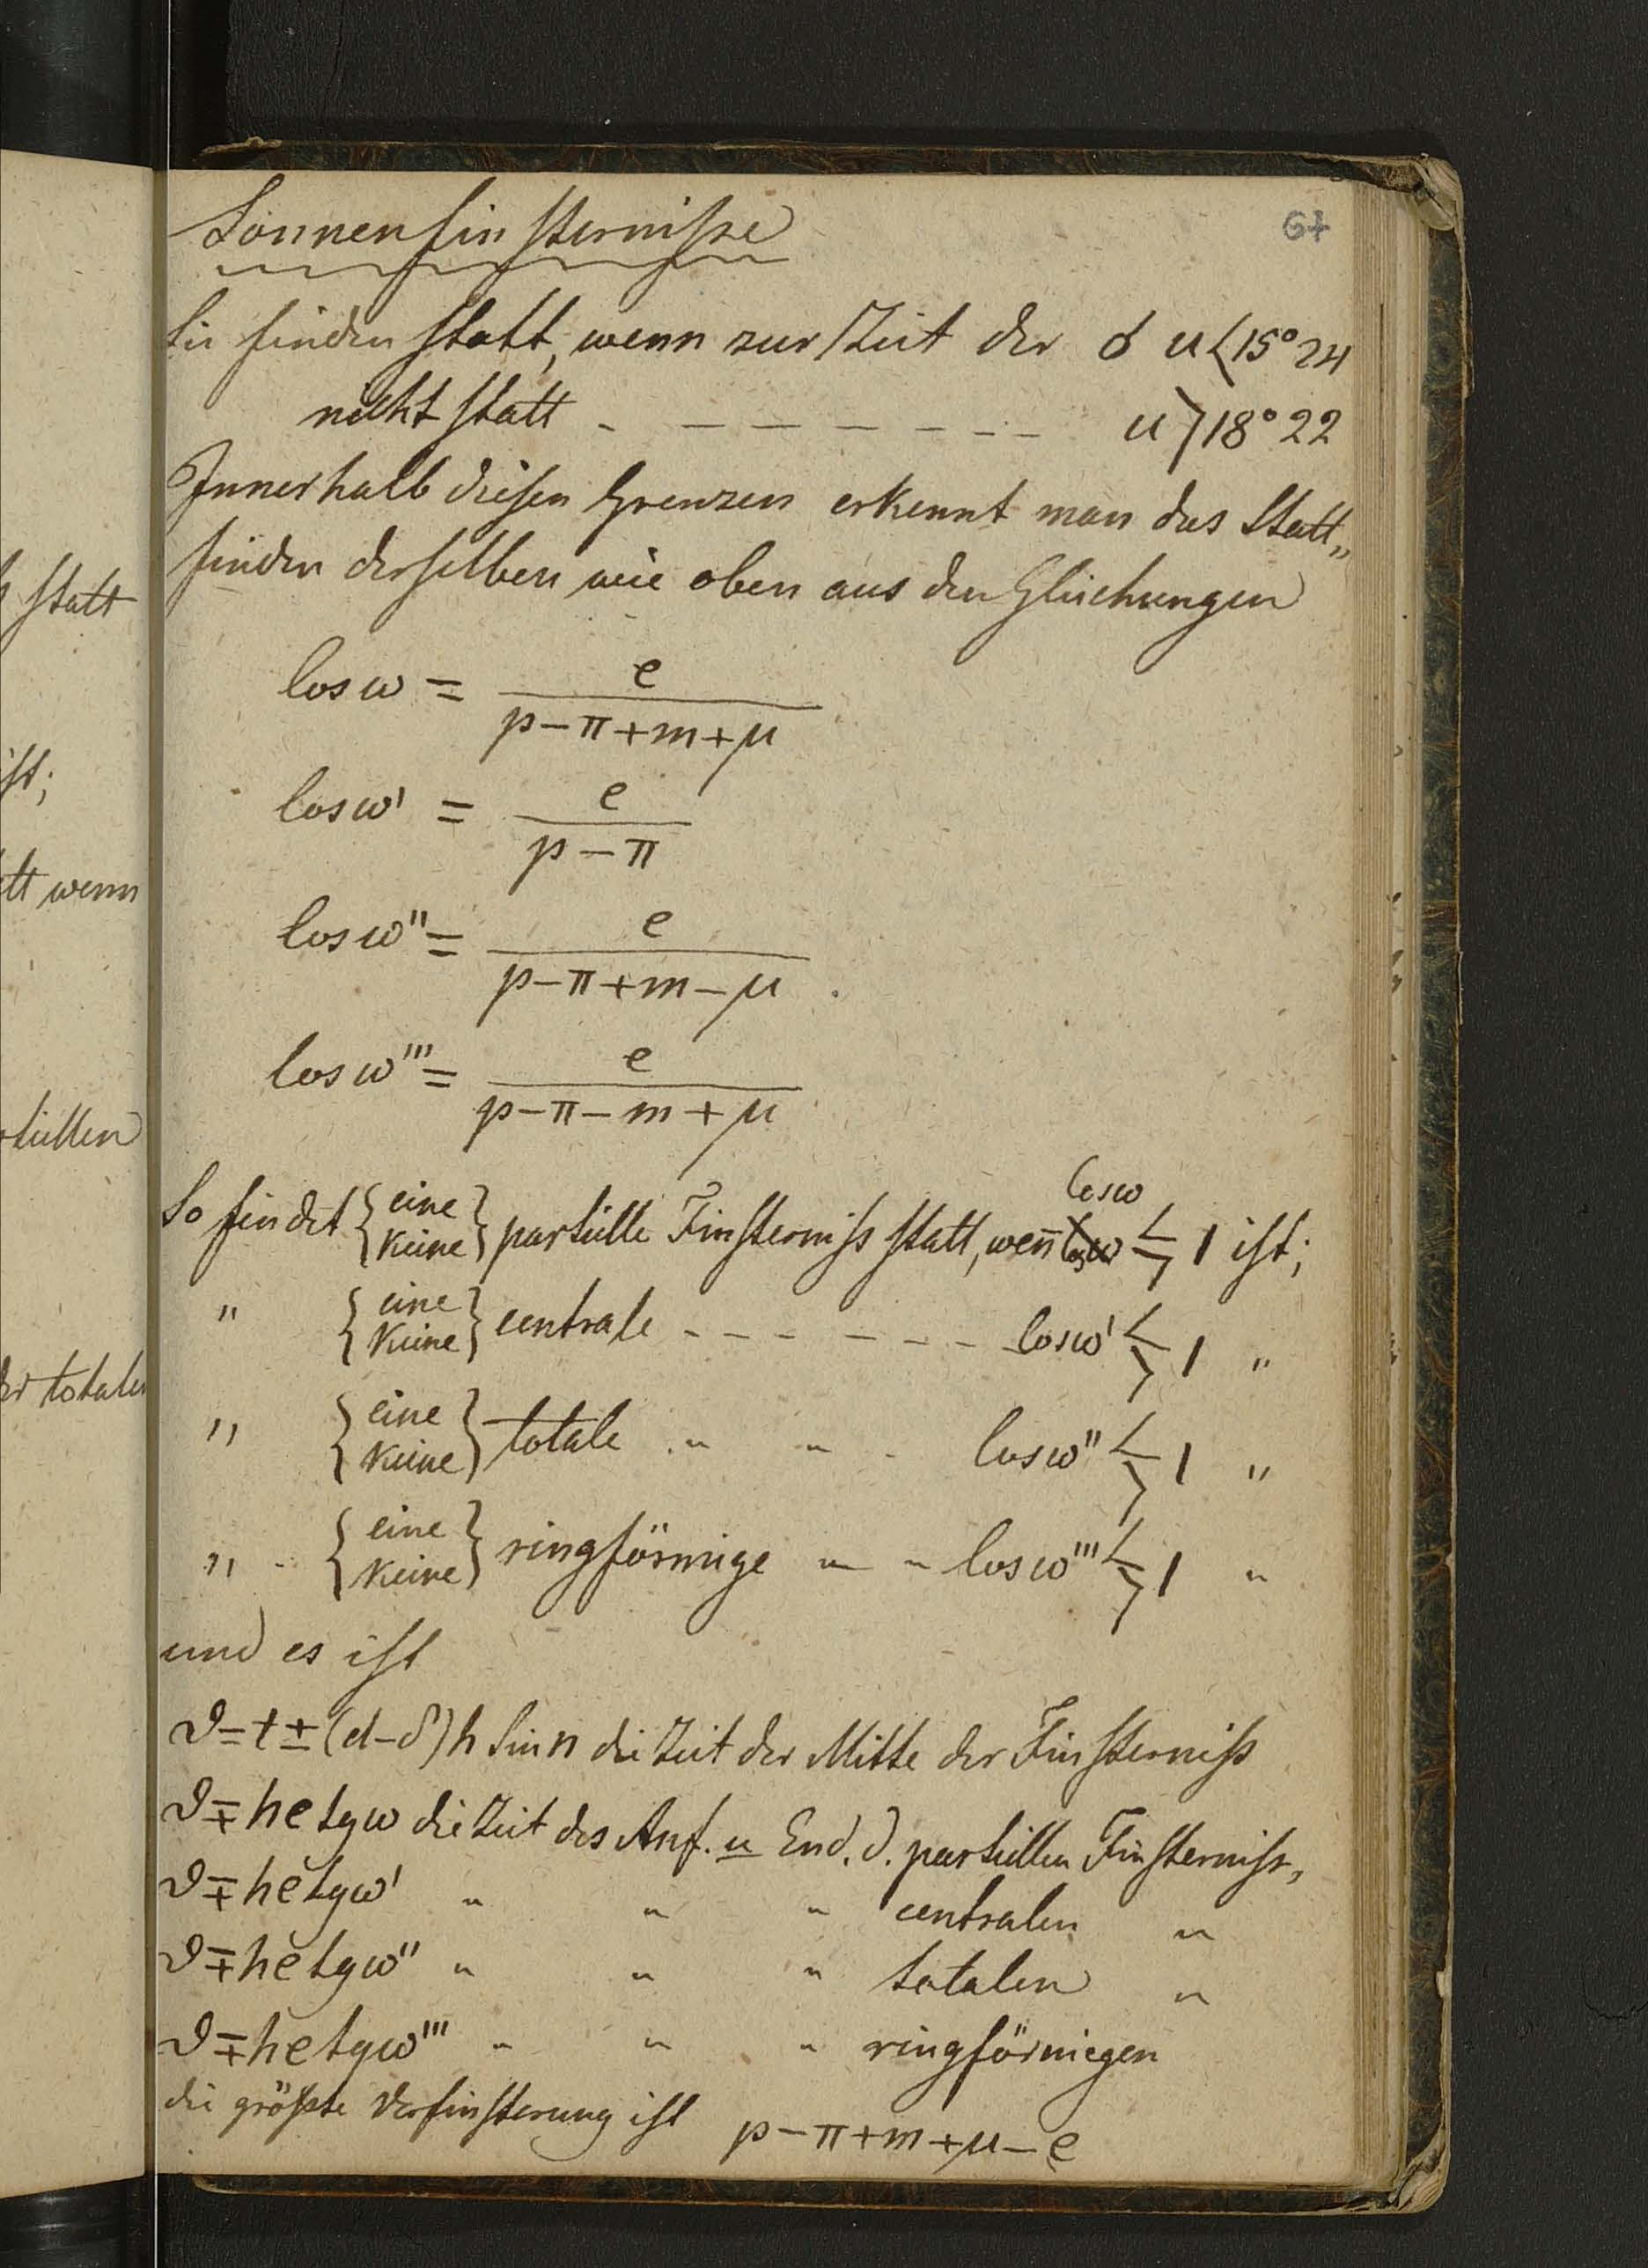 67
Sonnenfinsterniße
Sie finden statt, wenn zur Zeit der ☌ u<15°24
nicht statt - - - - - - - - u>18°22
Innerhalb diesen Grenzen erkennt man das Statt„
finden derselben wie oben aus den Gleichungen
Cos ω = e / (p-π+m+μ)
Cos ω' = e / (p-π)
Cos ω'' = e / (p-π+m-μ)
Cos ω''' = e / (p-π-m+μ)
So findet {eine / keine} partielle Finsterniss statt, wen̄ Cos ω ≶ 1 ist;
" {eine / keine} centrale - - - - - - - Cos ω' ≶ 1 "
" {eine / keine} totale " " - Cos ω'' ≶ 1 "
" - {eine / keine} ringförmige " " Cos ω''' ≶ 1 "
und es ist
ϑ=t±(d-δ)h Sin n die Zeit der Mitte der Finsterniß
ϑ∓he tgω die Zeit des Anf. u End. d. partiellen Finsterniss,
ϑ∓he tgω' " " " centralen "
ϑ∓he tgω'' " " " totalen "
ϑ∓he tgω''' " " " ringförmigen
die größte Verfinsterung ist p-π+m+μ-e
statt
ist;
tt wenn
tiellen
der totalen